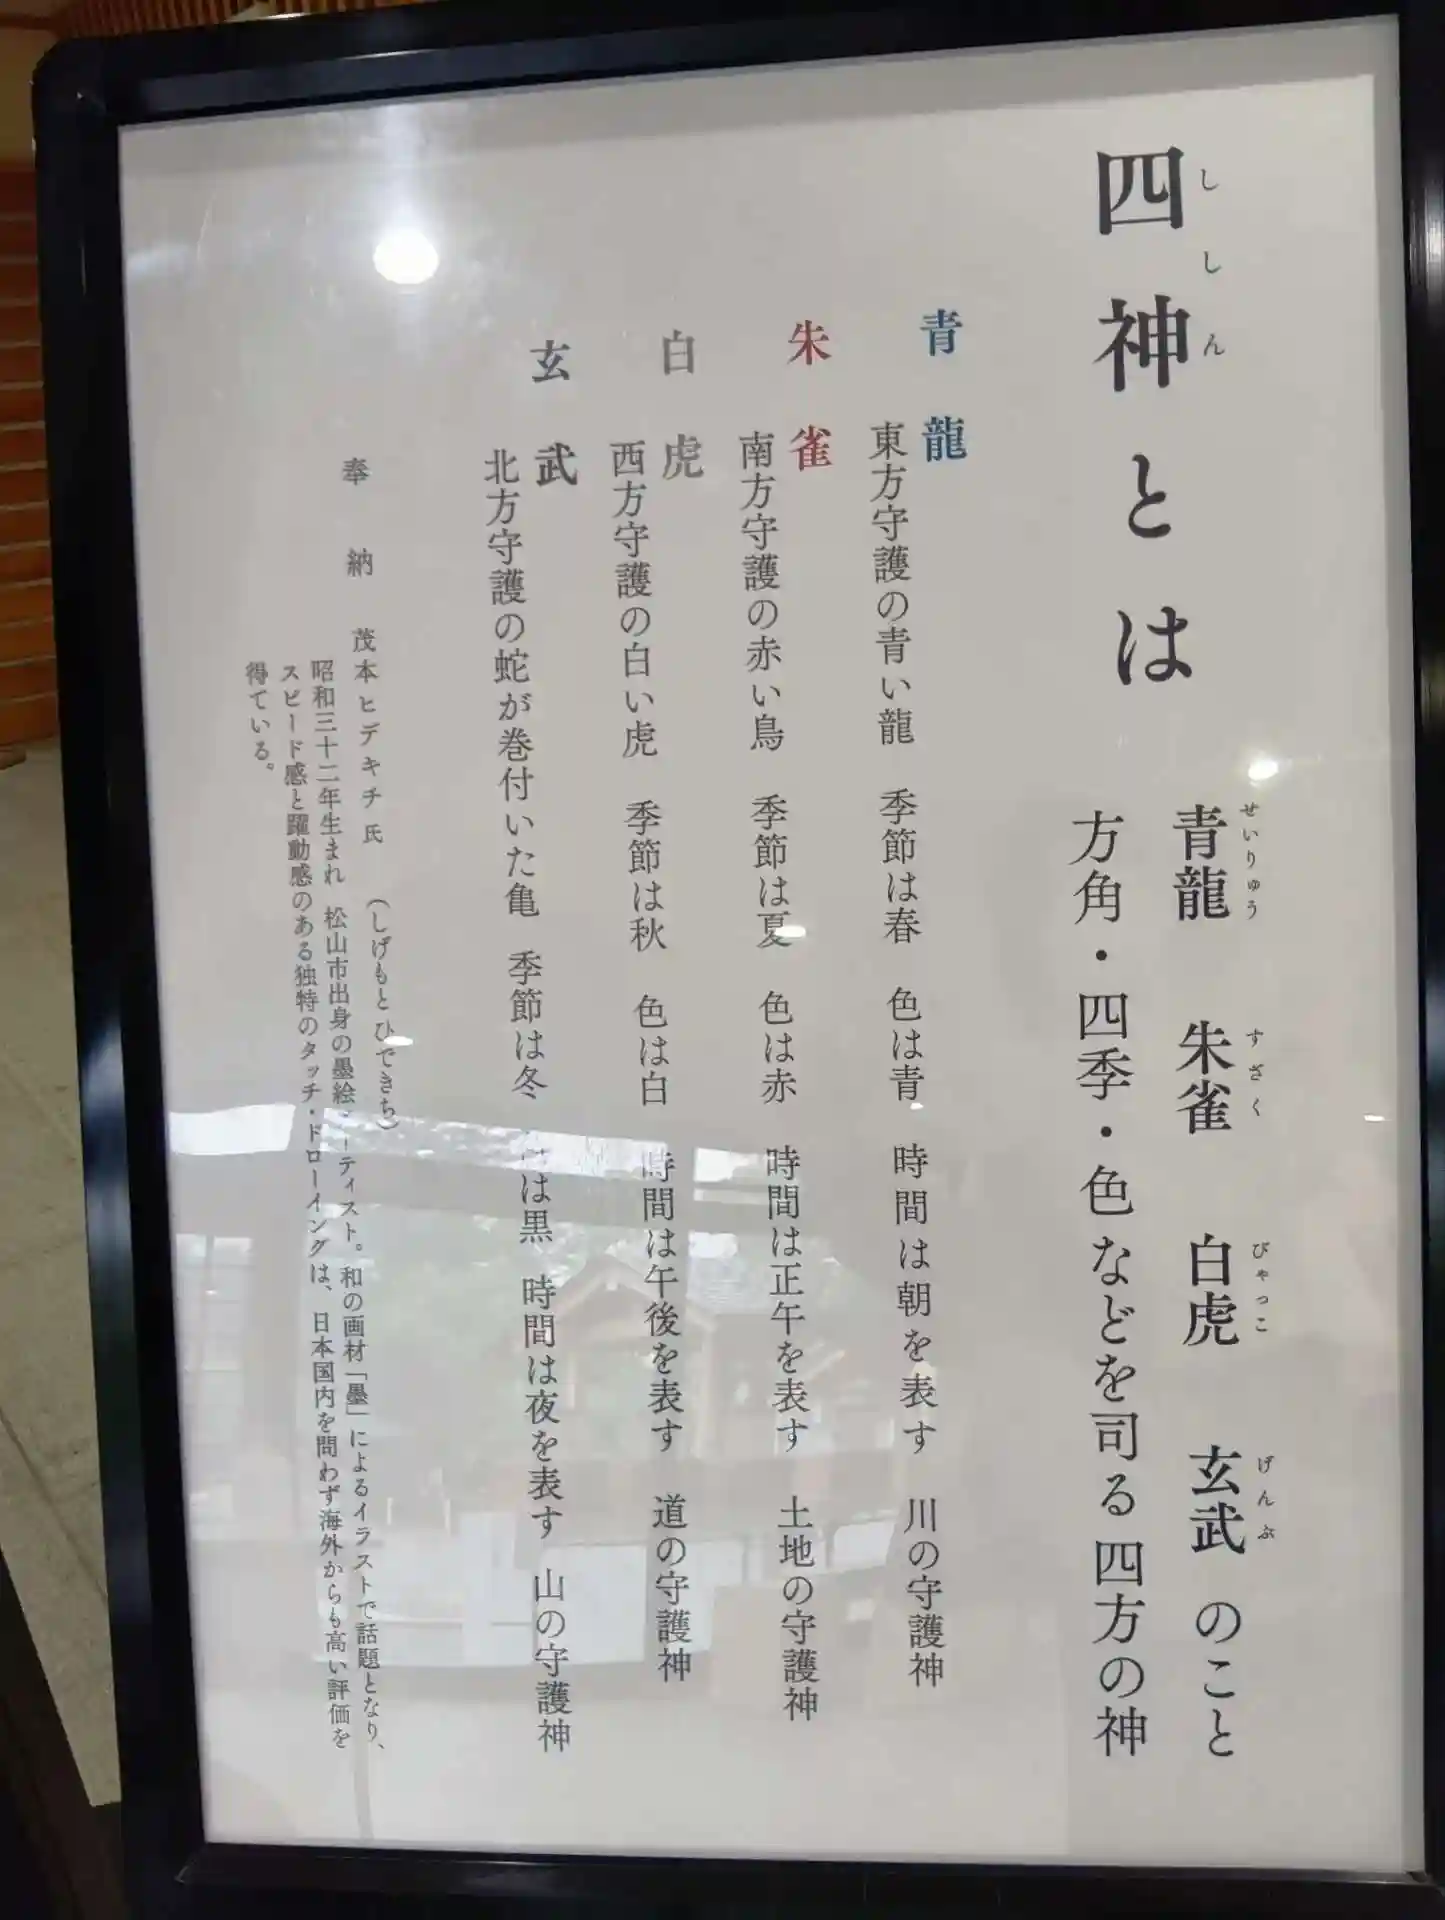 四神とは
ししん
青龍 朱雀 白虎 玄武 のこと
せいりゅう すざく びゃっこ げんぶ
方角・四季・色などを司る四方の神
青龍
東方守護の青い龍 季節は春 色は青 時間は朝を表す 川の守護神
朱雀
南方守護の赤い鳥 季節は夏 色は赤 時間は正午を表す 土地の守護神
白虎
西方守護の白い虎 季節は秋 色は白 時間は午後を表す 道の守護神
玄武
北方守護の蛇が巻付いた亀 季節は冬 は黒 時間は夜を表す 山の守護神
奉納 茂本ヒデキチ氏 (しげもと ひできち)
昭和三十二年生まれ 松山市出身の墨絵アーティスト。和の画材「墨」によるイラストで話題となり、
スピード感と躍動感のある独特のタッチ・ドローイングは、日本国内を問わず海外からも高い評価を
得ている。